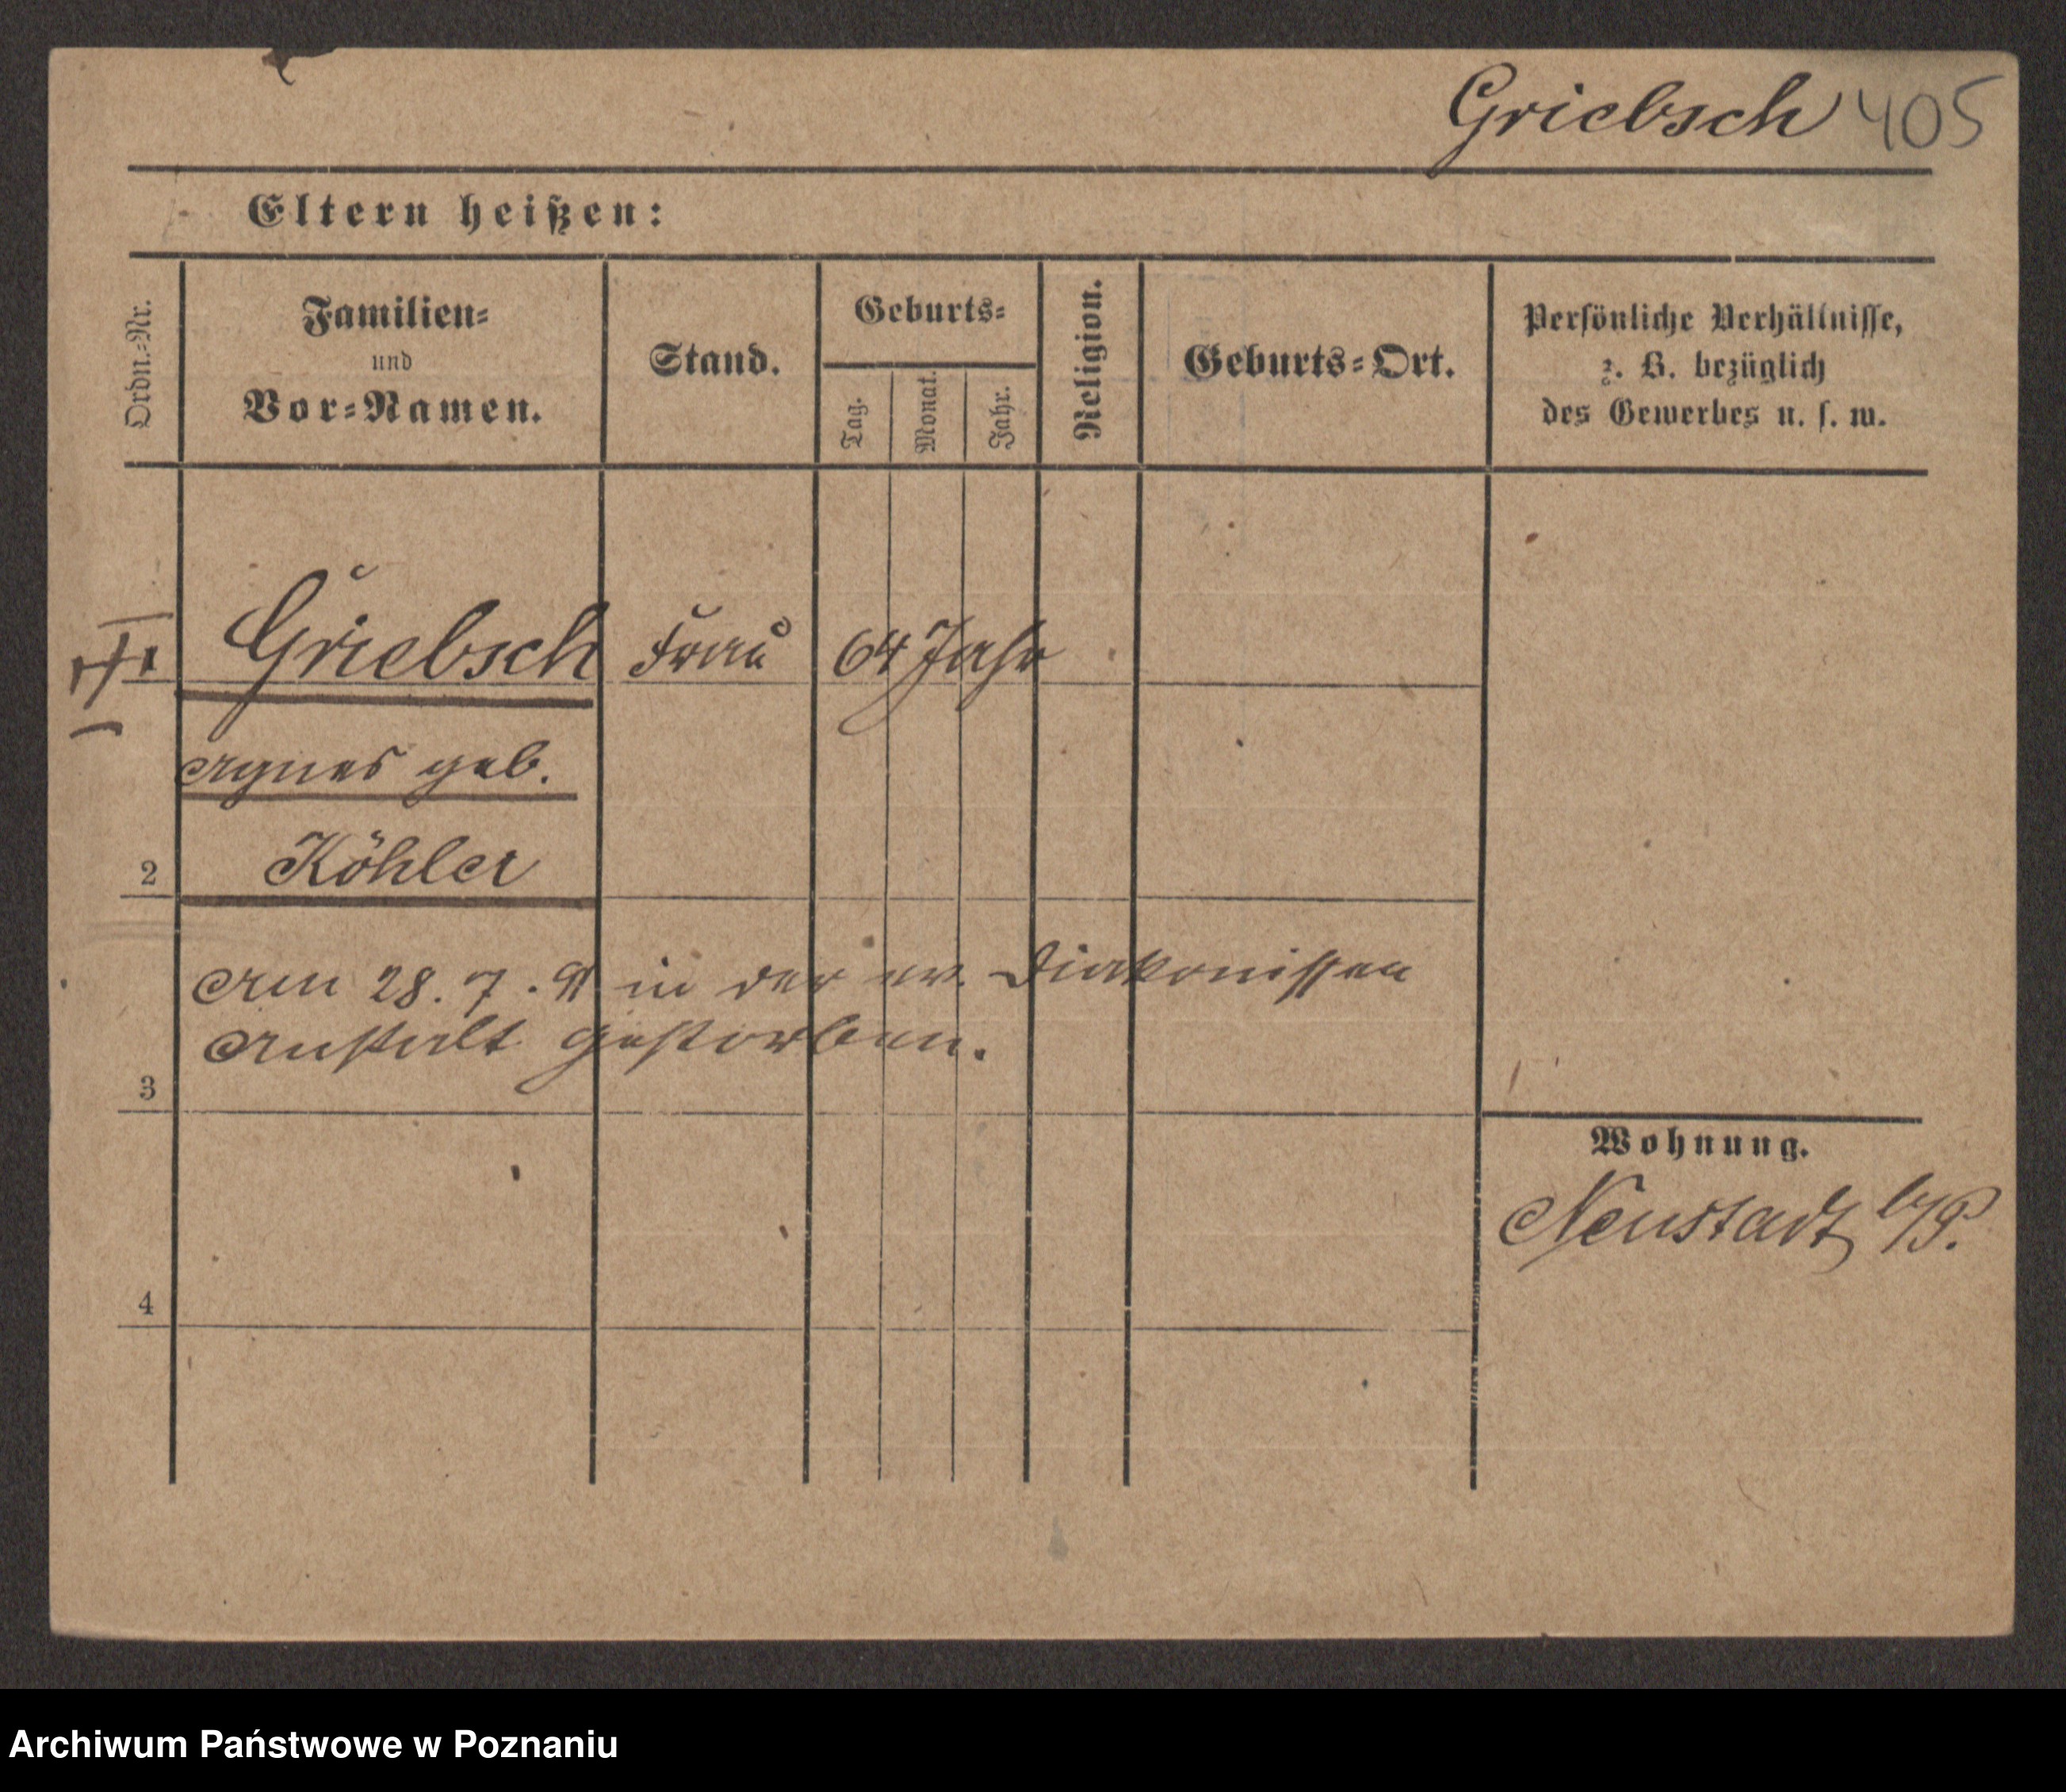 Griebsch 405
Eltern heißen:
Ordn.-Nr.
Familien-
und
Vor-Namen.
Stand.
Geburts-
Tag.
Monat.
Jahr.
Religion.
Geburts-Ort.
Persönliche Verhältnisse,
z. B. bezüglich
des Gewerbes u. s. w.
1 Griebsch Frau 64 Jahr
Agnes geb.
2 Köhler
Am 28. 7. in der ev. Diakonissen
Anstalt gestorben.
3
Wohnung.
Neustadt b/P.
4
Archiwum Państwowe w Poznaniu